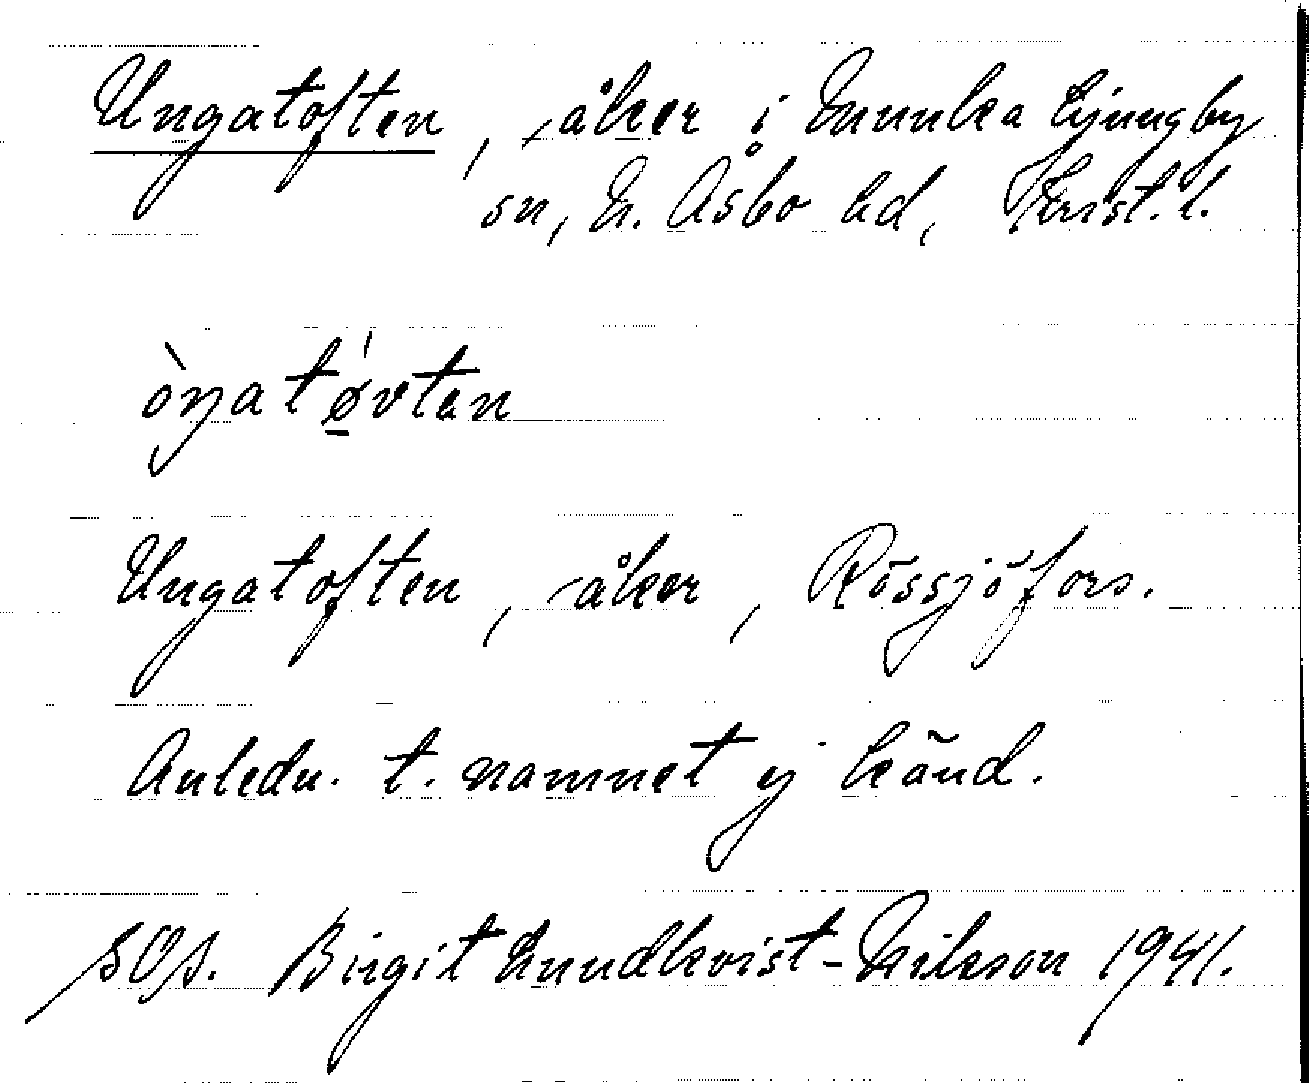 Ungatoften, åker i Munka Ljungby
sn, N. Åsbo hd, Krist. l.
òŋatǿ̱vtan
Ungatoften, åker, Rössjöfors.
Anledn. t. namnet ej känd.
Birgit Lundkvist-Nilsson 1941.